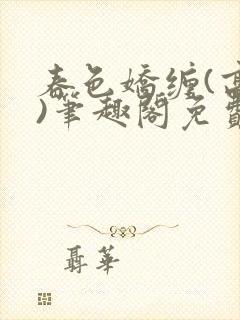 春色嬌纏(高
)筆趣閣免費
聶華